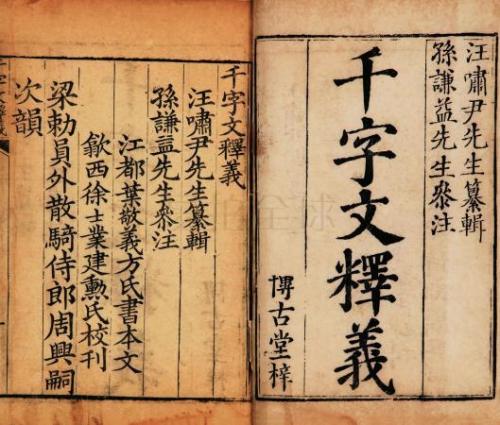 汪嘯尹先生纂輯
孫謙益先生參注
千字文釋義
博古堂梓
千字文釋義
汪嘯尹先生纂輯
孫謙益先生參注
江都葉敬義方氏書本文
歙西徐士業建勳氏校刊
梁勅員外散騎侍郎周興嗣
次韻
千字文釋義